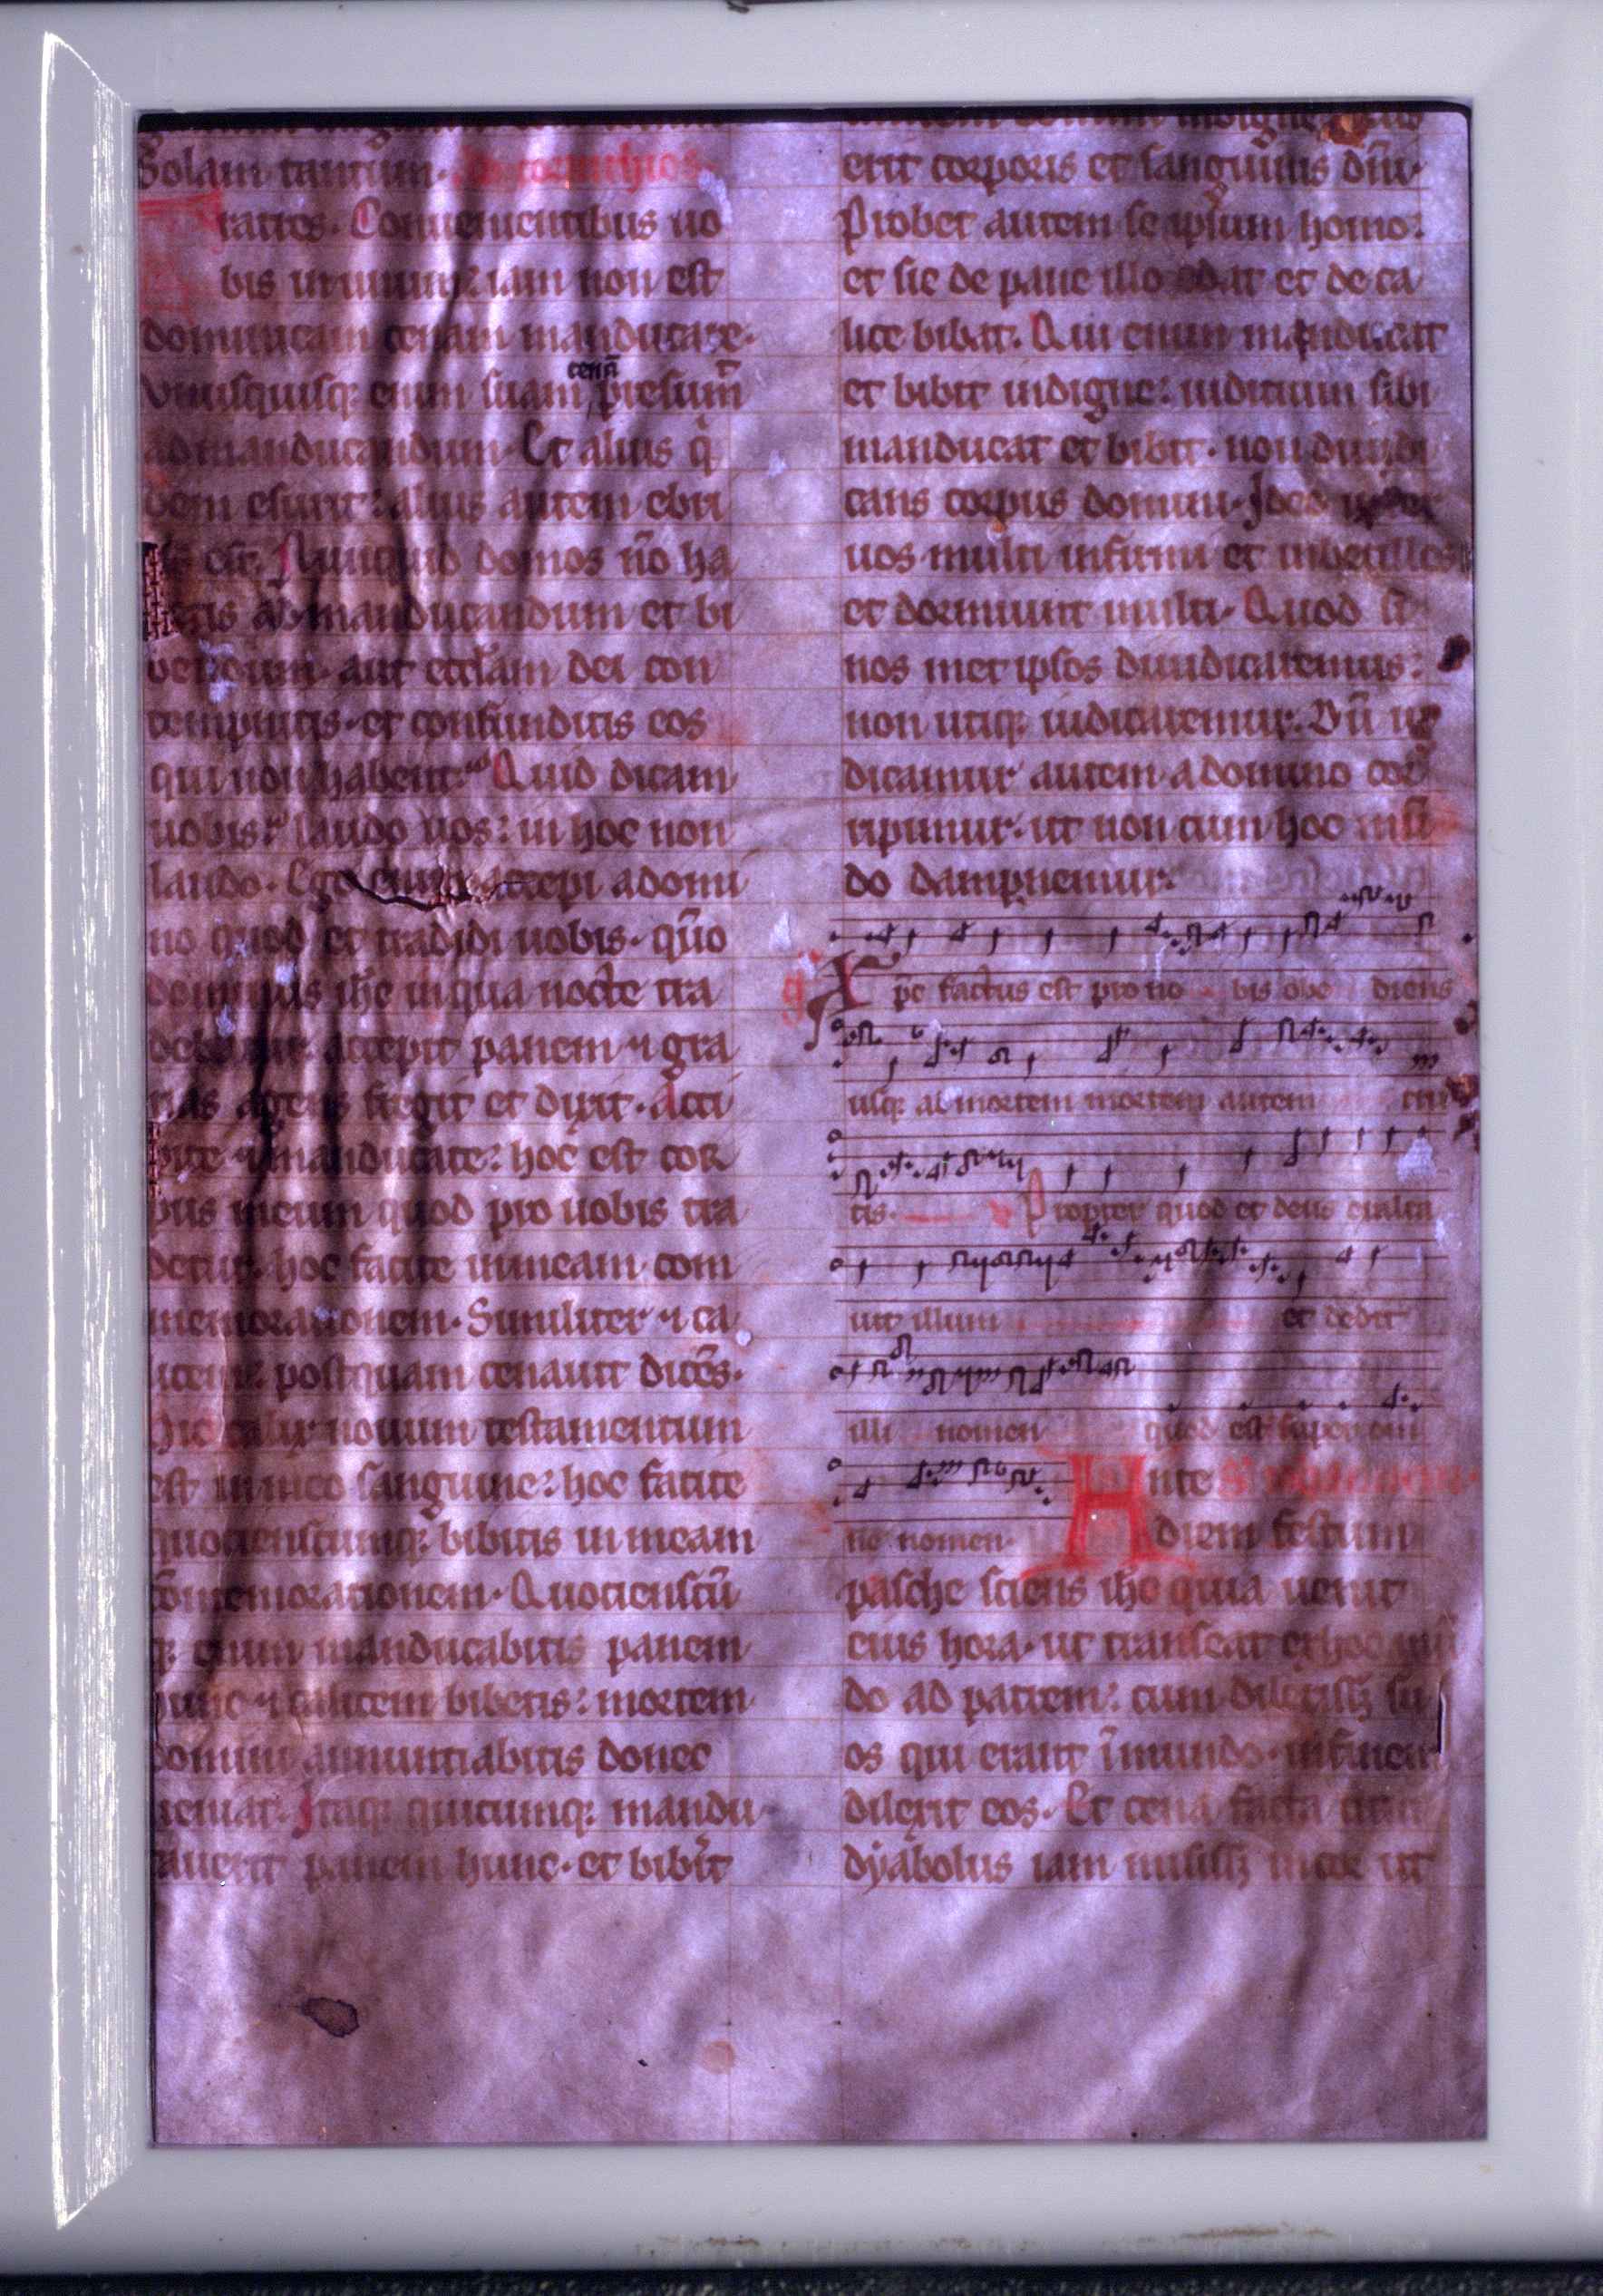 Solam tantum. Ad corinthios.
Fratres. Convenientibus uo
bis in unum: iam non est
dominicam cenam manducare.
Vnusquisq; enim suam cenā presum̄
ad manducandum. Et alius q̇
dem esurit: alius autem ebri
us est. Nunquid domos n̄o ha
betis ad manducandum et bi
bendum. aut eccl̄am dei con
tempnitis. et confunditis eos
qui non habent. Quid dicam
uobis? laudo uos: in hoc non
laudo. Ego enim accepi a domi
no quod et tradidi uobis. qm̄o
dominus ih̄c in qua nocte tra
debatur. accepit panem ⁊ gra
tias agens fregit et dixit. Acci
pite ⁊ manducate: hoc est cor
pus meum quod pro uobis tra
detur. hoc facite in meam com
memorationem. Similiter ⁊ ca
licem: postquam cenauit dicēs.
Hic calix nouum testamentum
est in meo sanguine: hoc facite
quotienscumq; bibitis in meam
cōmemorationem. Quotienscū
q; enim manducabitis panem
hunc ⁊ calicem bibetis: mortem
domini annuntiabitis donec
ueniat. Itaq; quicumq; mandu
cauerit panem hunc. et bib̓it
erit corporis et sanguinis dn̄i.
Probet autem se ipsum homo:
et sic de pane illo edat et de ca
lice bibat. Qui enim manducat
et bibit indigne: iuditium sibi
manducat et bibit. non diiudi
cans corpus domini. Ideo inter
uos multi infirmi et inbecilles
et dormiunt multi. Quod si
nos met ipsos diiudicaremus:
non utiq; iudicaremur. Dū iu
dicamur autem. a domino cor
ripimur. ut non cum hoc mū
do dampnemur.
g̓ Xp̄c factus est pro no bis obe diens
usq; ad mortem mortem autem cru
cis. ꝟ Propter quod et deus exalta
uit illum et dedit
illi nomen quod est super om
ne nomen. Ante
diem festum
pasche sciens ih̄c quia uenit
eius hora. ut transeat ex hoc mū
do ad patrem: cum dilexissꝫ su
os qui erant ī mundo. in finem
dilexit eos. Et cena facta cum
dyabolus iam misissꝫ in cor ut